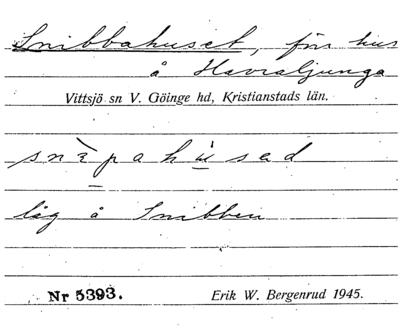 Snibbahuset, förr hus
å Havraljunga
Vittsjö sn V. Göinge hd, Kristianstads län.
snìpahùsad
låg å Snibben
Nr 5393.
Erik W. Bergenrud 1945.